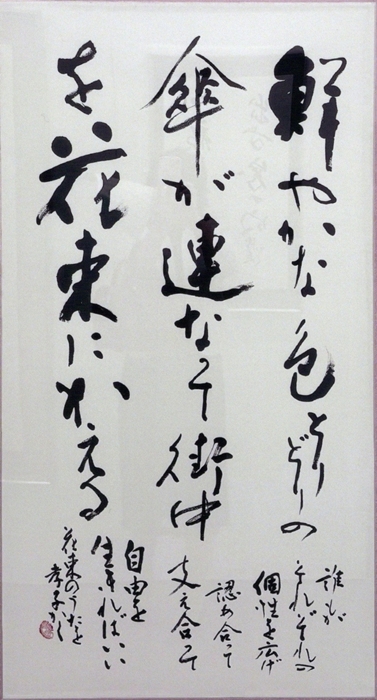 鮮やかな色とりどりの
傘が連なって街中
を花束にかえる
誰もが
それぞれの
個性を広げ
認め合って
支え合って
自由を
生きればいい
花束のうたを
孝子かく